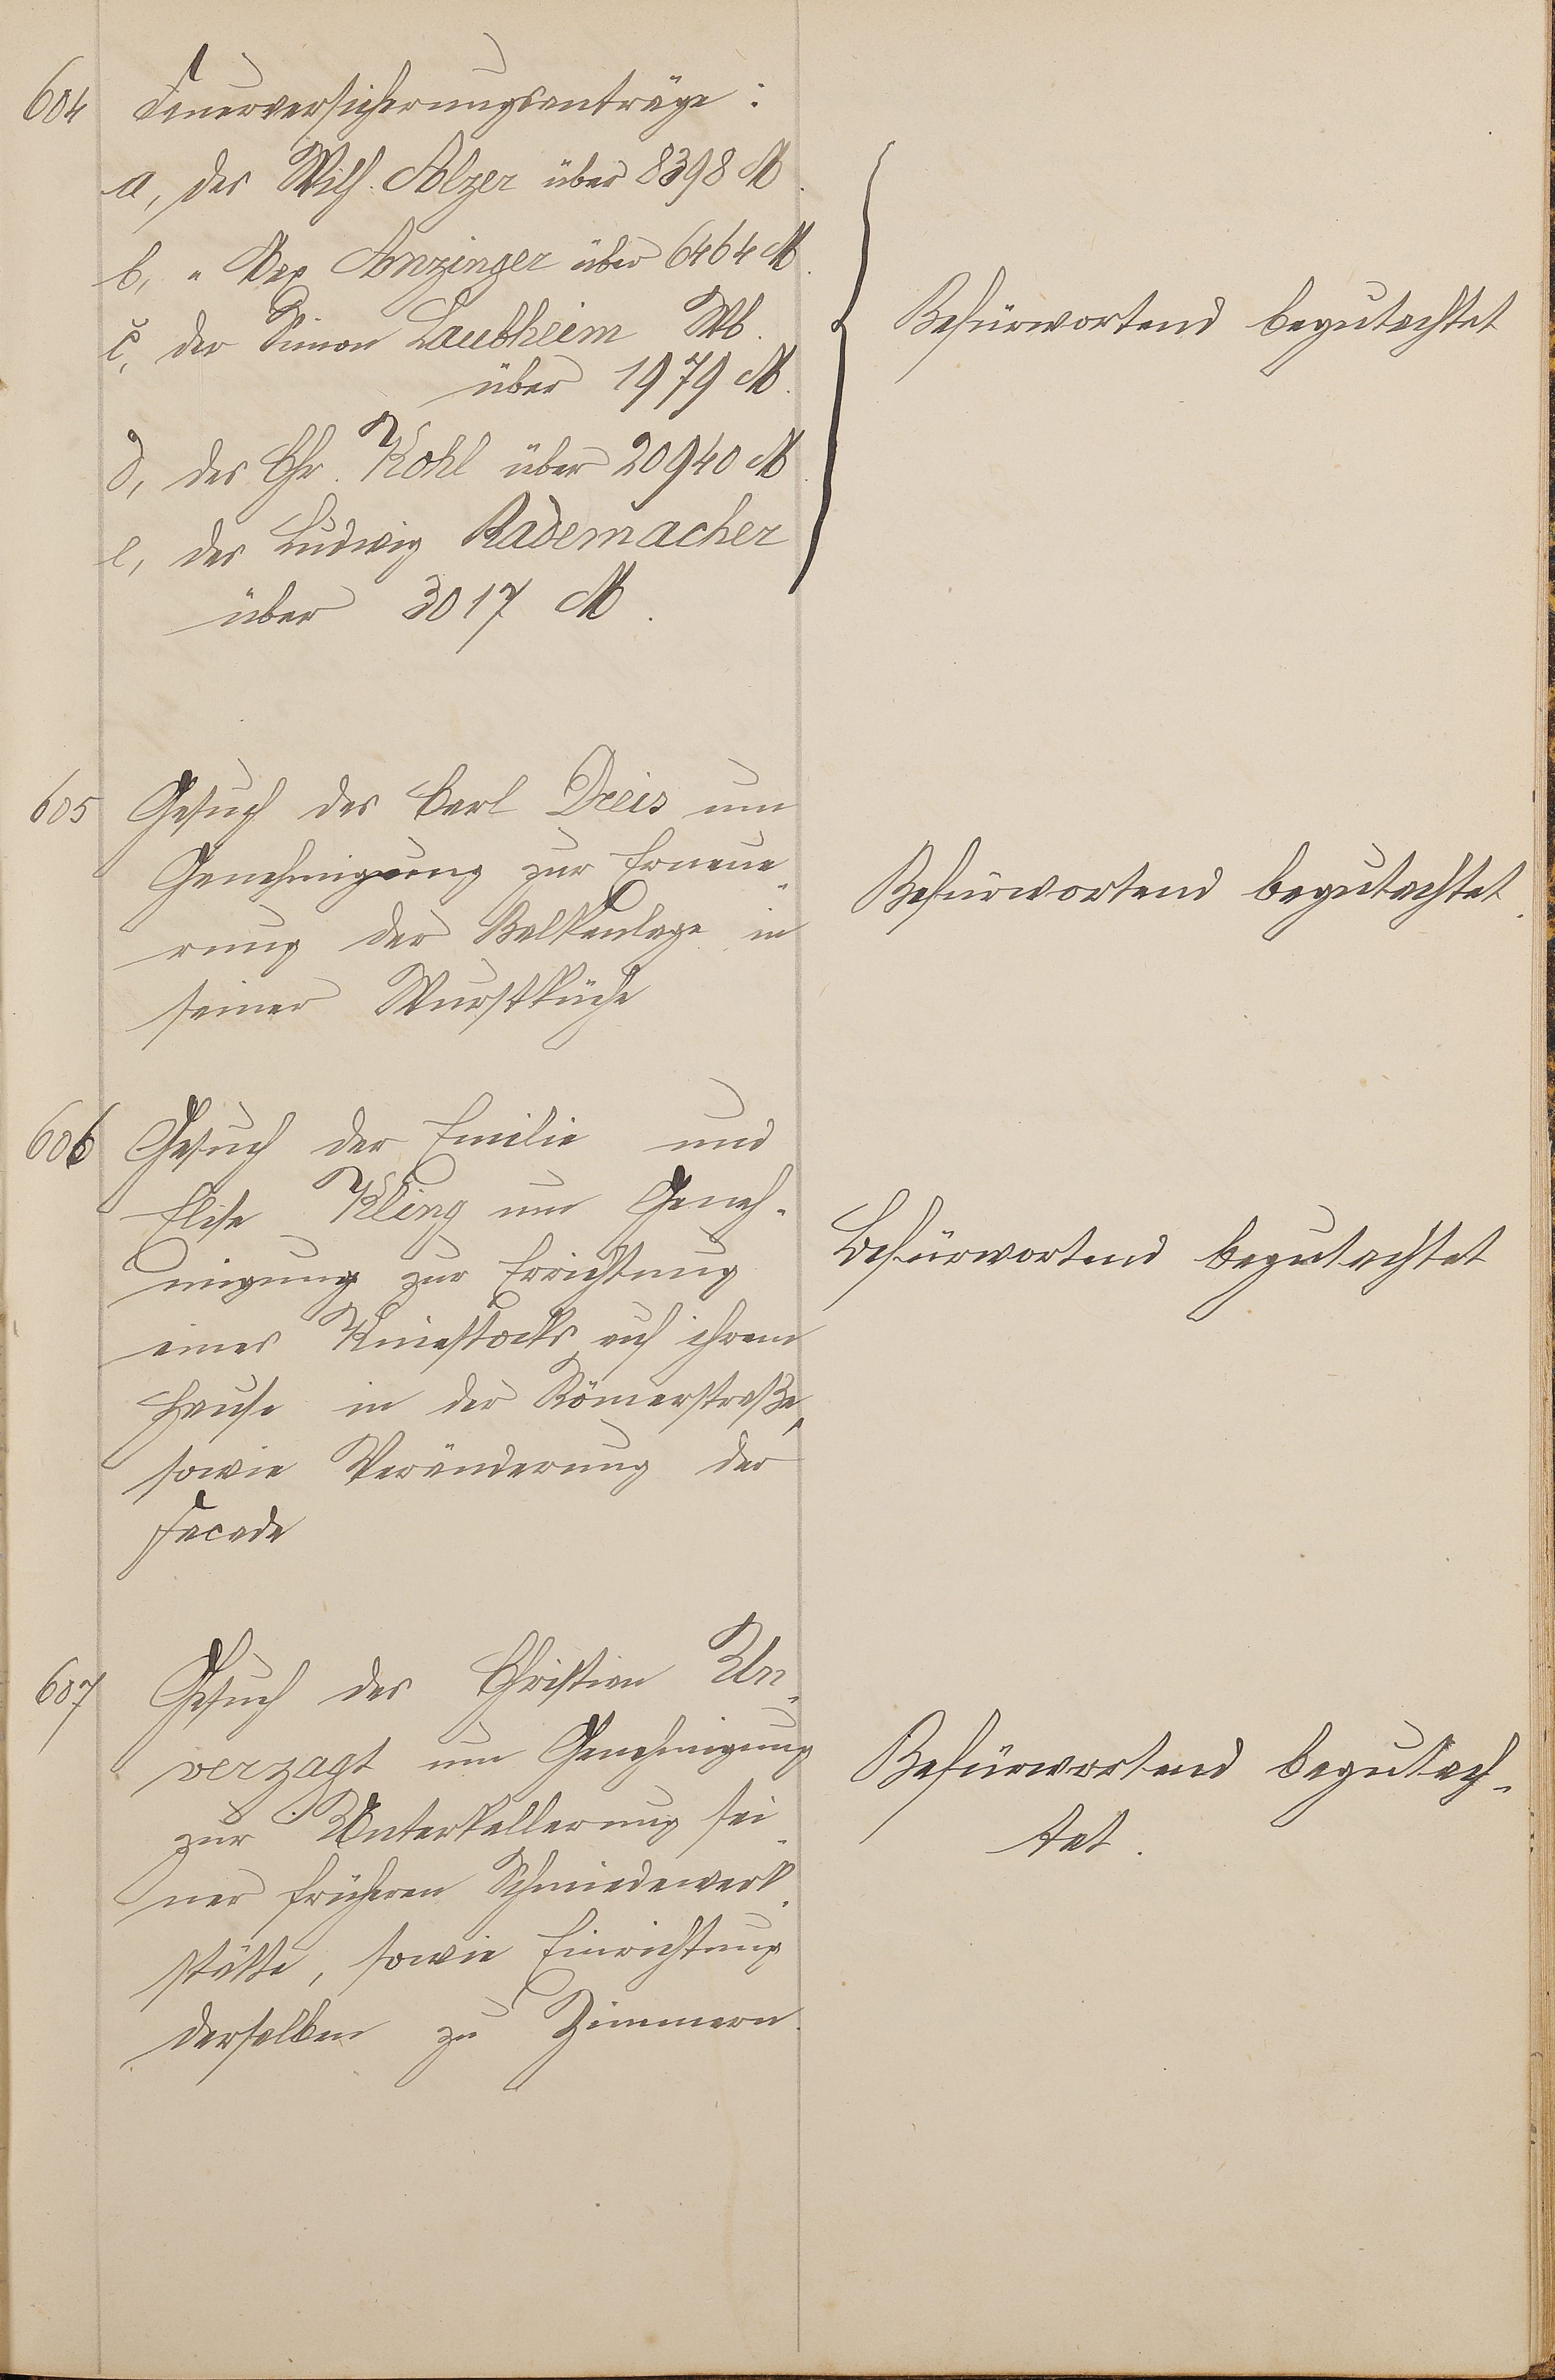 604 Feuerversicherungsanträge:
a, des Wilh. Alzer über 8398 M.
b, " Alex Anzinger über 6464 M.
c, der Simon Laubheim Wb.
über 1979 M.
d, des Chr. Kohl über 20940 M.
e, des Ludwig Rademacher
über 3017 M.
Befürwortend begutachtet
605 Gesuch des Carl Dreis um
Genehmigung zur Erneue-
rung der Balkenlage in
seiner Wurstküche
Befürwortend begutachtet.
606 Gesuch der Emilie und
Elise Kling um Geneh-
migung zur Errichtung
eines Kniestocks auf ihrem
Hause in der Römerstraße,
sowie Veränderung der
Facade
Befürwortend begutachtet
607 Gesuch des Christian Un-
verzagt um Genehmigung
zur Unterkellerung sei-
ner früheren Schmiedewerk-
stätte, sowie Einrichtung
derselben zu Zimmern.
Befürwortend begutach-
tet.